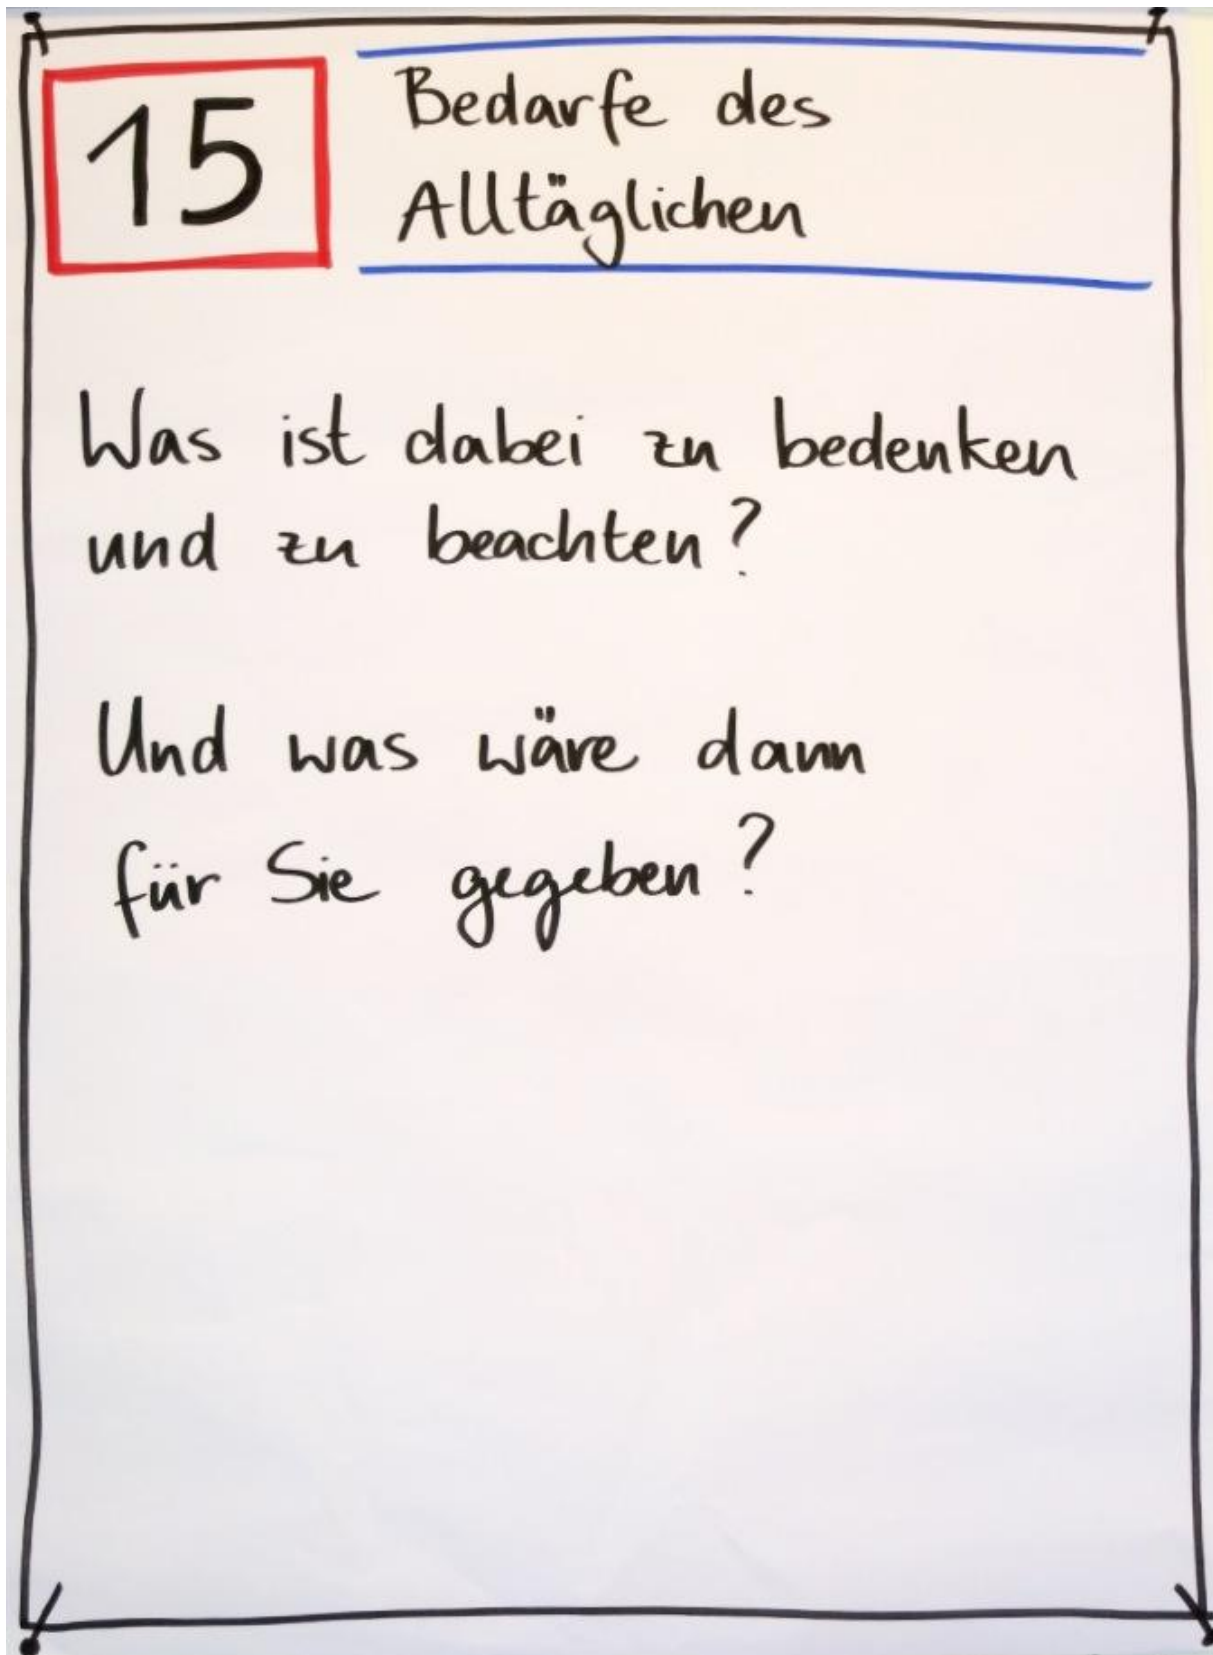 15
Bedarfe des
Alltäglichen
Was ist dabei zu bedenken
und zu beachten?
Und was wäre dann
für Sie gegeben?